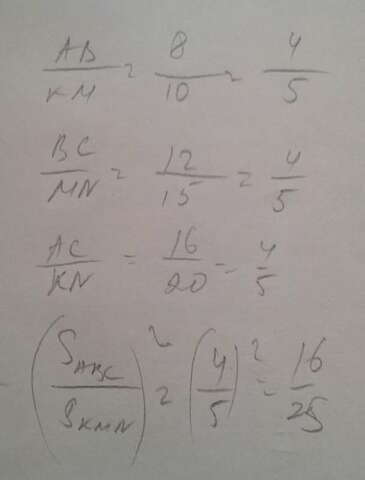 AB/KM = 8/10 = 4/5
BC/MN = 12/15 = 4/5
AC/KN = 16/20 = 4/5
(S_ABC/S_KMN)² = (4/5)² = 16/25